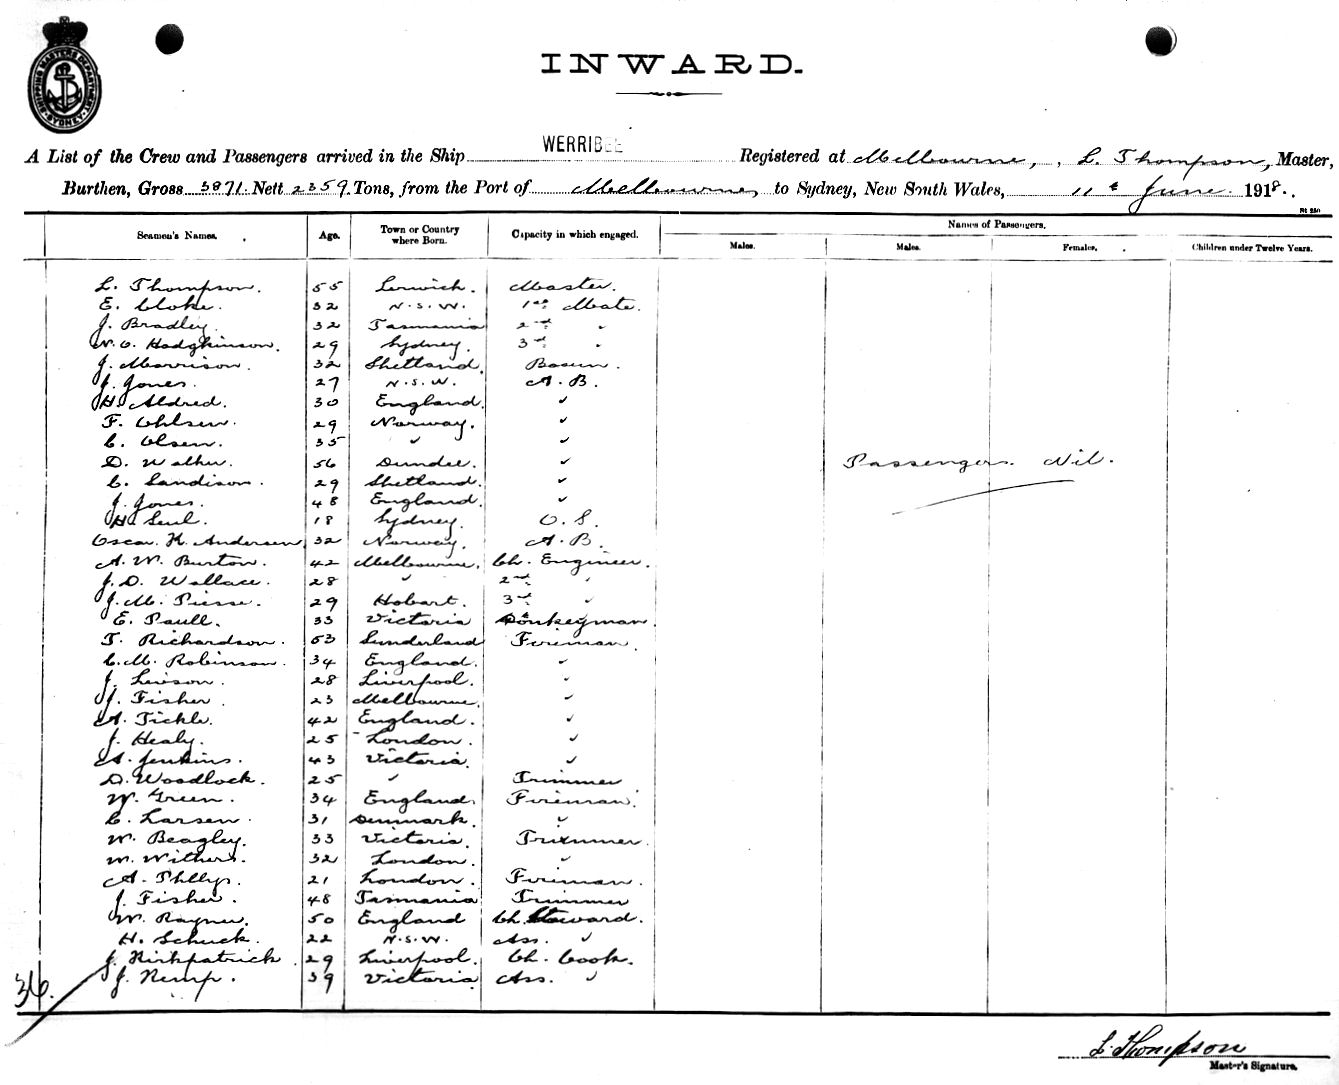 SHIPPING MASTERS DEPARTMENT SYDNEY
INWARD.
A List of the Crew and Passengers arrived in the Ship WERRIBEE Registered at Melbourne, , L. Thompson, Master,
Burthen, Gross 3871. Nett 2359. Tons, from the Port of Melbourne, to Sydney, New South Wales, 11th June 1918.
Seamen's Names. Age. Town or Country where Born. Capacity in which engaged. Names of Passengers.
Males. Males. Females. Children under Twelve Years.
L. Thompson. 55 Lerwick. Master.
E. Cloke. 32 N.S.W. 1st Mate.
J. Bradley. 32 Tasmania 2nd "
W. C. Hodgkinson. 29 Sydney. 3rd "
J. Morrison. 32 Shetland. Bosun.
J. Jones. 27 N.S.W. A.B.
H. Aldred. 30 England. "
F. Ohlsen. 29 Norway. "
C. Olsen. 35 " "
D. Walker. 56 Dundee. "
C. Sandison. 29 Shetland. "
J. Jones. 48 England. "
H. 18 Sydney. O.S.
Oscar. H. Andersen 32 Norway. A.B.
A. W. Burton. 42 Melbourne. Ch. Engineer.
J. D. Wallace. 28 " 2nd "
J. M. Piesse. 29 Hobart. 3rd "
E. Paull. 33 Victoria Donkeyman
T. Richardson. 53 Sunderland Fireman.
C. M. Robinson. 34 England. "
J. Lewson. 28 Liverpool. "
J. Fisher. 23 Melbourne. "
A. Tickle. 42 England. "
J. Healy. 25 London. "
A. Jenkins. 43 Victoria. "
D. Woodlock. 25 " Trimmer
W. Green. 34 England. Fireman.
C. Larsen. 31 Denmark. "
W. Beagley. 33 Victoria. Trimmer.
W. Withers. 32 London. "
A. Phllyp. 21 London. Fireman.
J. Fisher. 48 Tasmania Trimmer
W. Rayner. 50 England Ch. Steward.
H. Schuck. 22 N.S.W. Ass. "
J. Kirkpatrick 29 Liverpool. Ch. Cook.
J. Kemp. 39 Victoria Ass. "
Passengers. Nil.
36.
L. Thompson
Master's Signature.